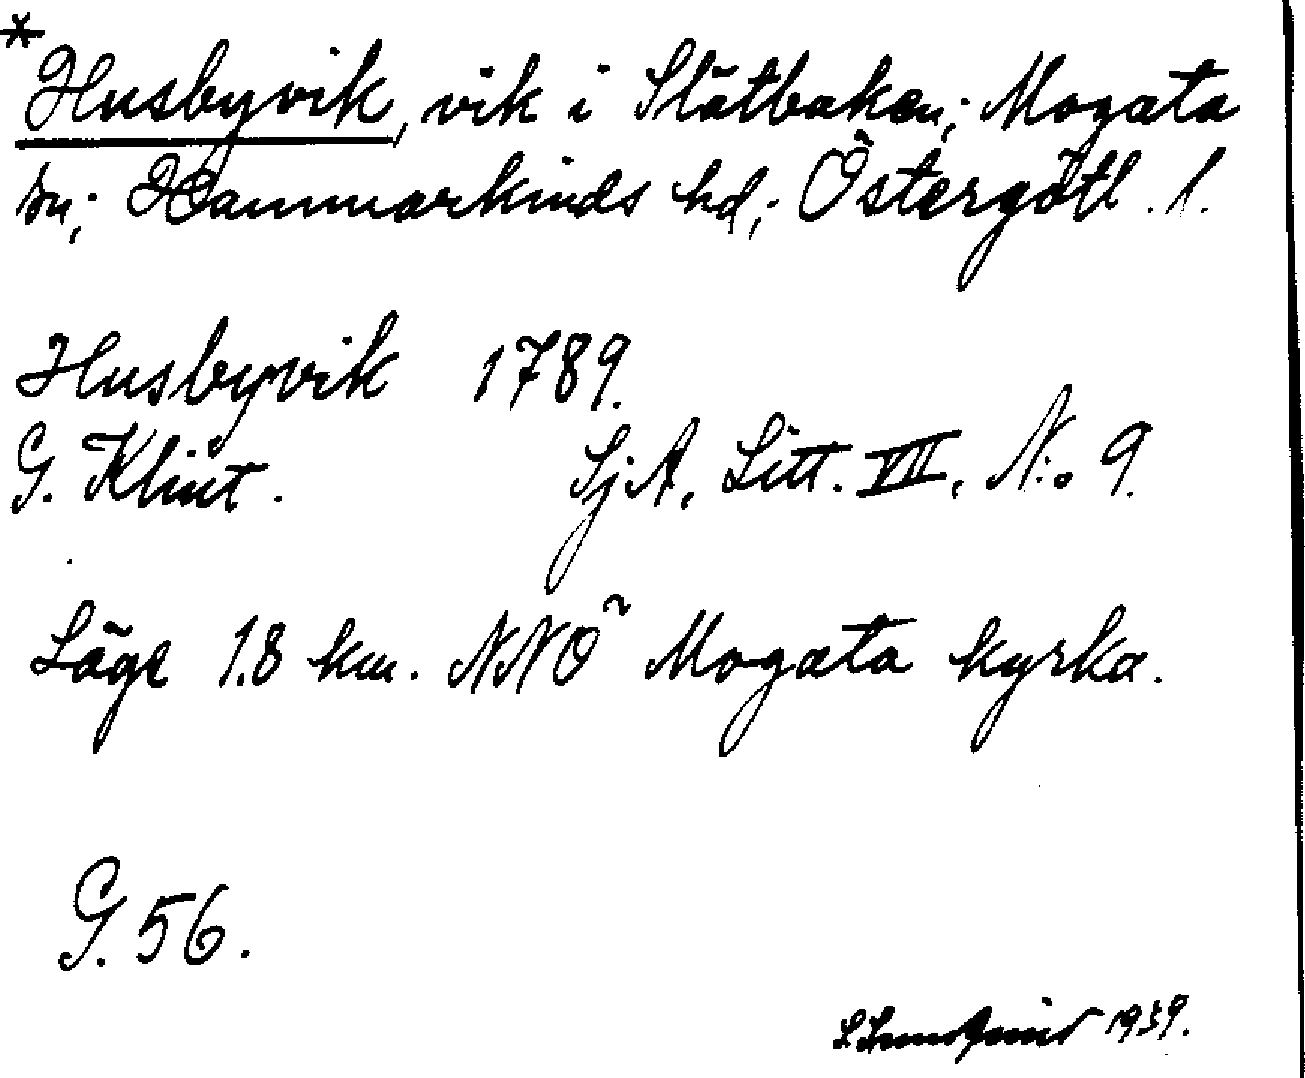 *
Husbyvik, vik i Slätbaken; Mogata
sn; Hammarkinds hd; Östergötl. l.
Husbyvik 1789.
G. Klint. SjA, Litt. VII, N:o 9.
Läge 1.8 km. NNÖ Mogata kyrka.
G. 56.
1939.